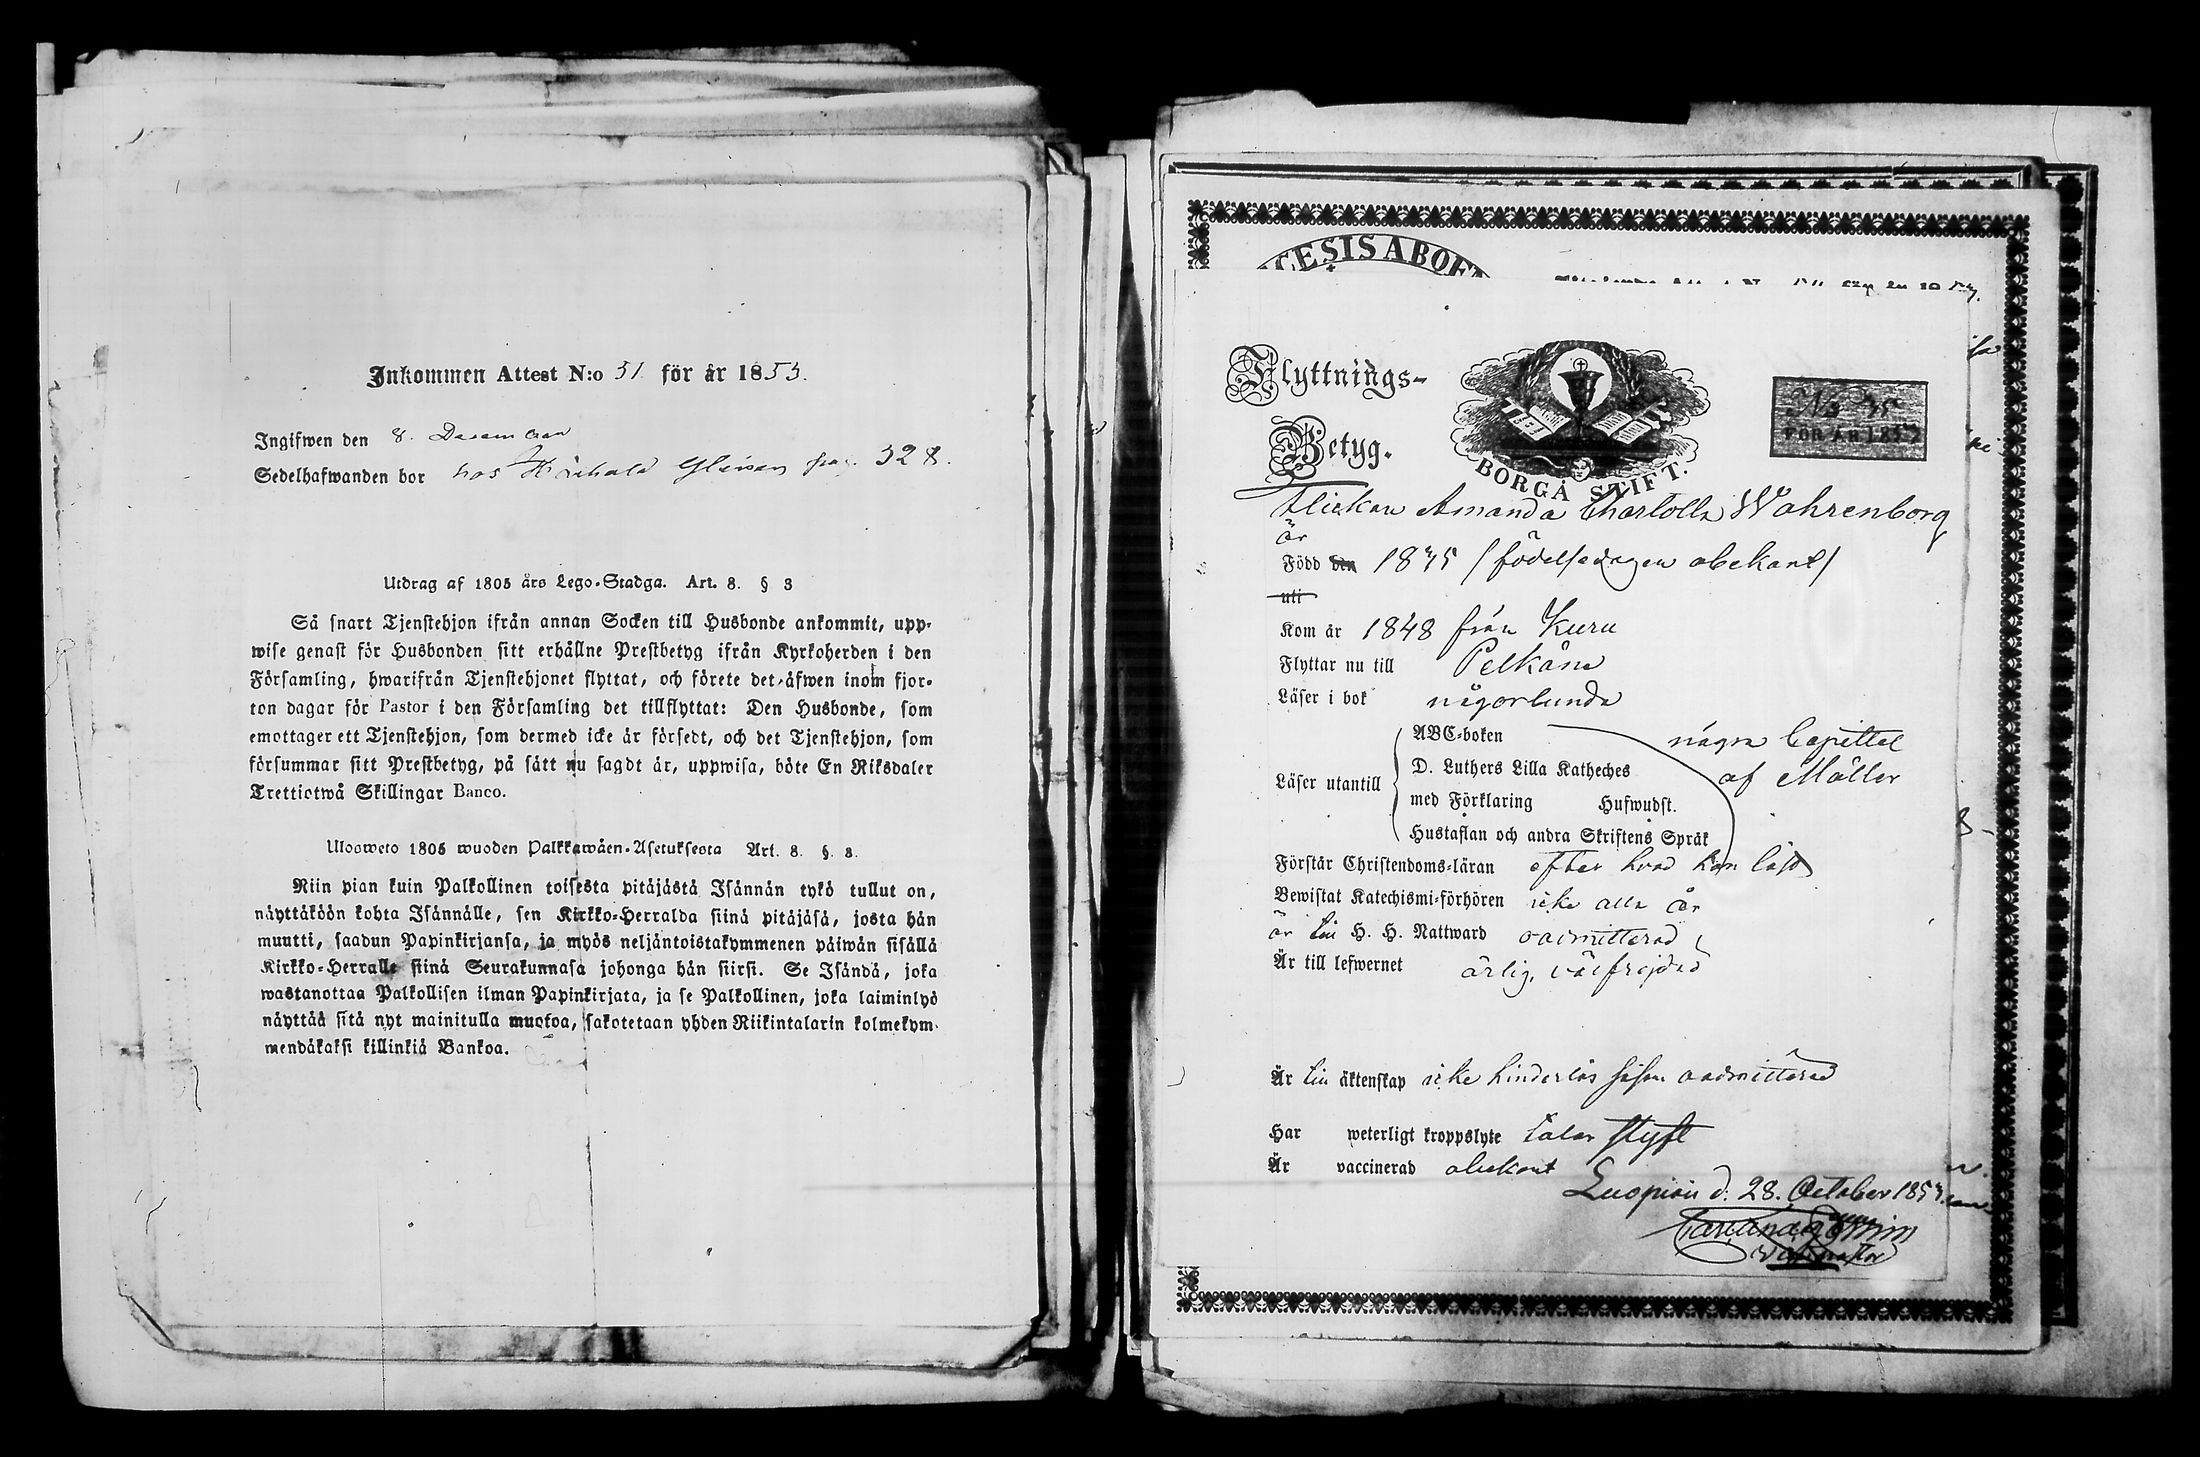 Inkommen Attest N:o 51 för år 1853.
Ingifwen den 8. December
Sedelhafwanden bor hos Härhald pag. 328.
Utdrag af 1805 års Lego-Stadga. Art. 8. § 3
Så snart Tjenstehjon ifrån annan Socken till Husbonde ankommit, upp-
wise genast för Husbonden sitt erhållne Prestbetyg ifrån Kyrkoherden i den
Församling, hwarifrån Tjenstehjonet flyttat, och förete det äfwen inom fjor-
ton dagar för Pastor i den Församling det tillflyttat: Den Husbonde, som
emottager ett Tjenstehjon, som dermed icke är försedt, och det Tjenstehjon, som
försummar sitt Prestbetyg, på sätt nu sagdt är, uppwisa, böte En Riksdaler
Trettiotwå Skillingar Banco.
Uloosweto 1805 wuoden Palkkawäen-Asetuksesta Art. 8. §. 3.
Niin pian kuin Palkollinen toisesta pitäjästä Isännän tykö tullut on,
näyttäköön kohta Isännälle, sen Kirkko-Herralda siinä pitäjäsä, josta hän
muutti, saadun Papinkirjansa, ja myös neljäntoistakymmenen päiwän sisällä
Kirkko-Herralle siinä Seurakunnasa johonga hän siirsi. Se Isändä, joka
wastanottaa Palkollisen ilman Papinkirjata, ja se Palkollinen, joka laiminlyö
näyttää sitä nyt mainitulla muotoa, sakotetaan yhden Riikintalarin kolmekym-
mendäkaksi killinkiä Bankoa.
CESIS ABOE
Flyttnings-
Betyg.
BORGÅ STIFT.
No 35
FÖR ÅR 1853
Flickan Amanda Charlotta Wahrenborg
är
Född den 1835 /födelsedagen obekant/
uti
Kom år 1848 från Kuru
Flyttar nu till Pelkäne
Läser i bok någorlunda
Läser utantill
ABC-boken
D. Luthers Lilla Katheches
med Förklaring Hufwudst.
Hustaflan och andra Skriftens Språk
några Capittel
af Möller
Förstår Christendoms-läran efter hvad hon läst
Bewistat Katechismi-förhören icke alla år
är till H. H. Nattward oadmitterad
Är till lefwernet ärlig, välfrejdad
Är till äktenskap icke hinderlös såsom oadmitterad
Har weterligt kroppslyte talar styft
Är vaccinerad obekant
Luopiois d. 28. October 1853